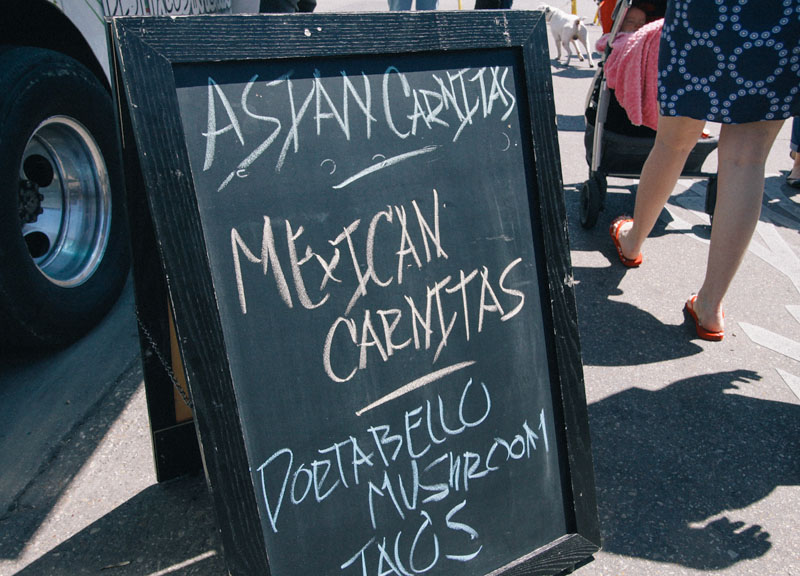 ASIAN CARNITAS
MEXICAN
CARNITAS
PORTABELLO
MUSHROOM
TACOS